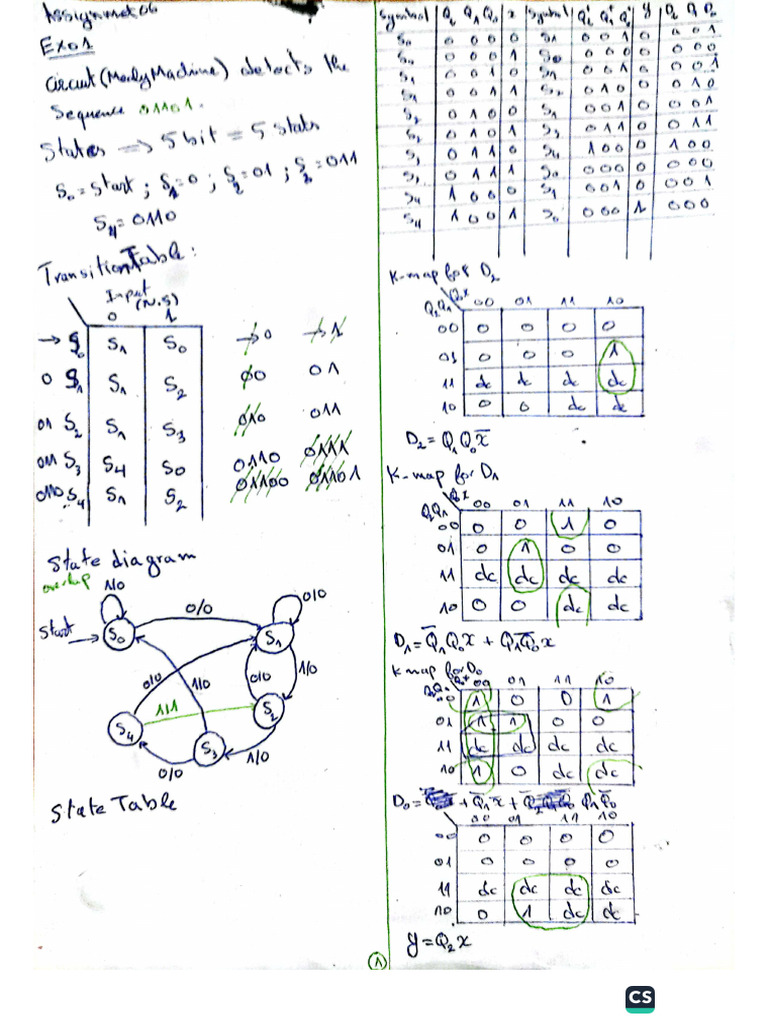 Assignmet 06
Ex01
Circuit (Mealy Machine) detects the
Sequence 01101.
States => 5 bit = 5 stats
S0 = Start ; S1 = 0 ; S2 = 01 ; S3 = 011
S4 = 0110
Transition Table:
Input (N.S)
0 1
→ S0 S1 S0 → 0 → 1
0 S1 S1 S2 00 01
01 S2 S1 S3 010 011
011 S3 S4 S0 0110 0111
0110 S4 S1 S2 01100 01101
State diagram
overlap
1/0
0/0
0/0
Start → S0
S1
0/0
1/0
0/0
1/0
1/1
S4
S2
S3
0/0
1/0
State Table
Symbol Q2 Q1 Q0 x Symbol Q2+ Q1+ Q0+ y D2 D1 D0
S0 0 0 0 0 S1 0 0 1 0 0 0 1
S0 0 0 0 1 S0 0 0 0 0 0 0 0
S1 0 0 1 0 S1 0 0 1 0 0 0 1
S1 0 0 1 1 S2 0 1 0 0 0 1 0
S2 0 1 0 0 S1 0 0 1 0 0 0 1
S2 0 1 0 1 S3 0 1 1 0 0 1 1
S3 0 1 1 0 S4 1 0 0 0 1 0 0
S3 0 1 1 1 S0 0 0 0 0 0 0 0
S4 1 0 0 0 S1 0 0 1 0 0 0 1
S4 1 0 0 1 S0 0 0 0 1 0 0 0
K-map for D2
Q2Q1 Q0x 00 01 11 10
00 0 0 0 0
01 0 0 0 1
11 dc dc dc dc
10 0 0 dc dc
D2 = Q1 Q0 x̄
K-map for D1
Q2Q1 Q0x 00 01 11 10
00 0 0 1 0
01 0 1 0 0
11 dc dc dc dc
10 0 0 dc dc
D1 = Q̄1 Q0 x + Q1 Q̄0 x
K map for D0
Q2Q1 Q0x 00 01 11 10
00 1 0 0 1
01 1 1 0 0
11 dc dc dc dc
10 1 0 dc dc
D0 = + Q̄1 x̄ + Q1 Q̄0
00 01 11 10
00 0 0 0 0
01 0 0 0 0
11 dc dc dc dc
10 0 1 dc dc
y = Q2 x
1
CS